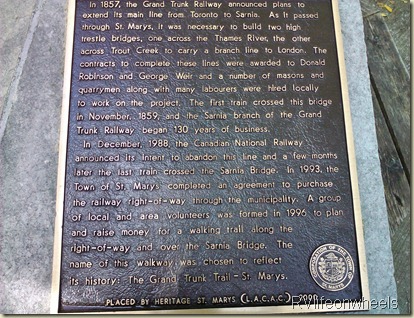 In 1857, the Grand Trunk Railway announced plans to
extend its main line from Toronto to Sarnia. As it passed
through St. Marys, it was necessary to build two high
trestle bridges, one across the Thames River, the other
across Trout Creek to carry a branch line to London. The
contracts to complete these lines were awarded to Donald
Robinson and George Weir and a number of masons and
quarrymen along with many labourers were hired locally
to work on the project. The first train crossed this bridge
in November, 1859, and the Sarnia branch of the Grand
Trunk Railway began 130 years of business.
In December, 1988, the Canadian National Railway
announced its intent to abandon this line and a few months
later the last train crossed the Sarnia Bridge. In 1993, the
Town of St. Marys completed an agreement to purchase
the railway right-of-way through the municipality. A group
of local and area volunteers was formed in 1996 to plan
and raise money for a walking trail along the
right-of-way and over the Sarnia Bridge. The
name of this walkway was chosen to reflect
its history: The Grand Trunk Trail - St. Marys.
PLACED BY HERITAGE ST. MARYS (L.A.C.A.C.)
RVlifeonwheels